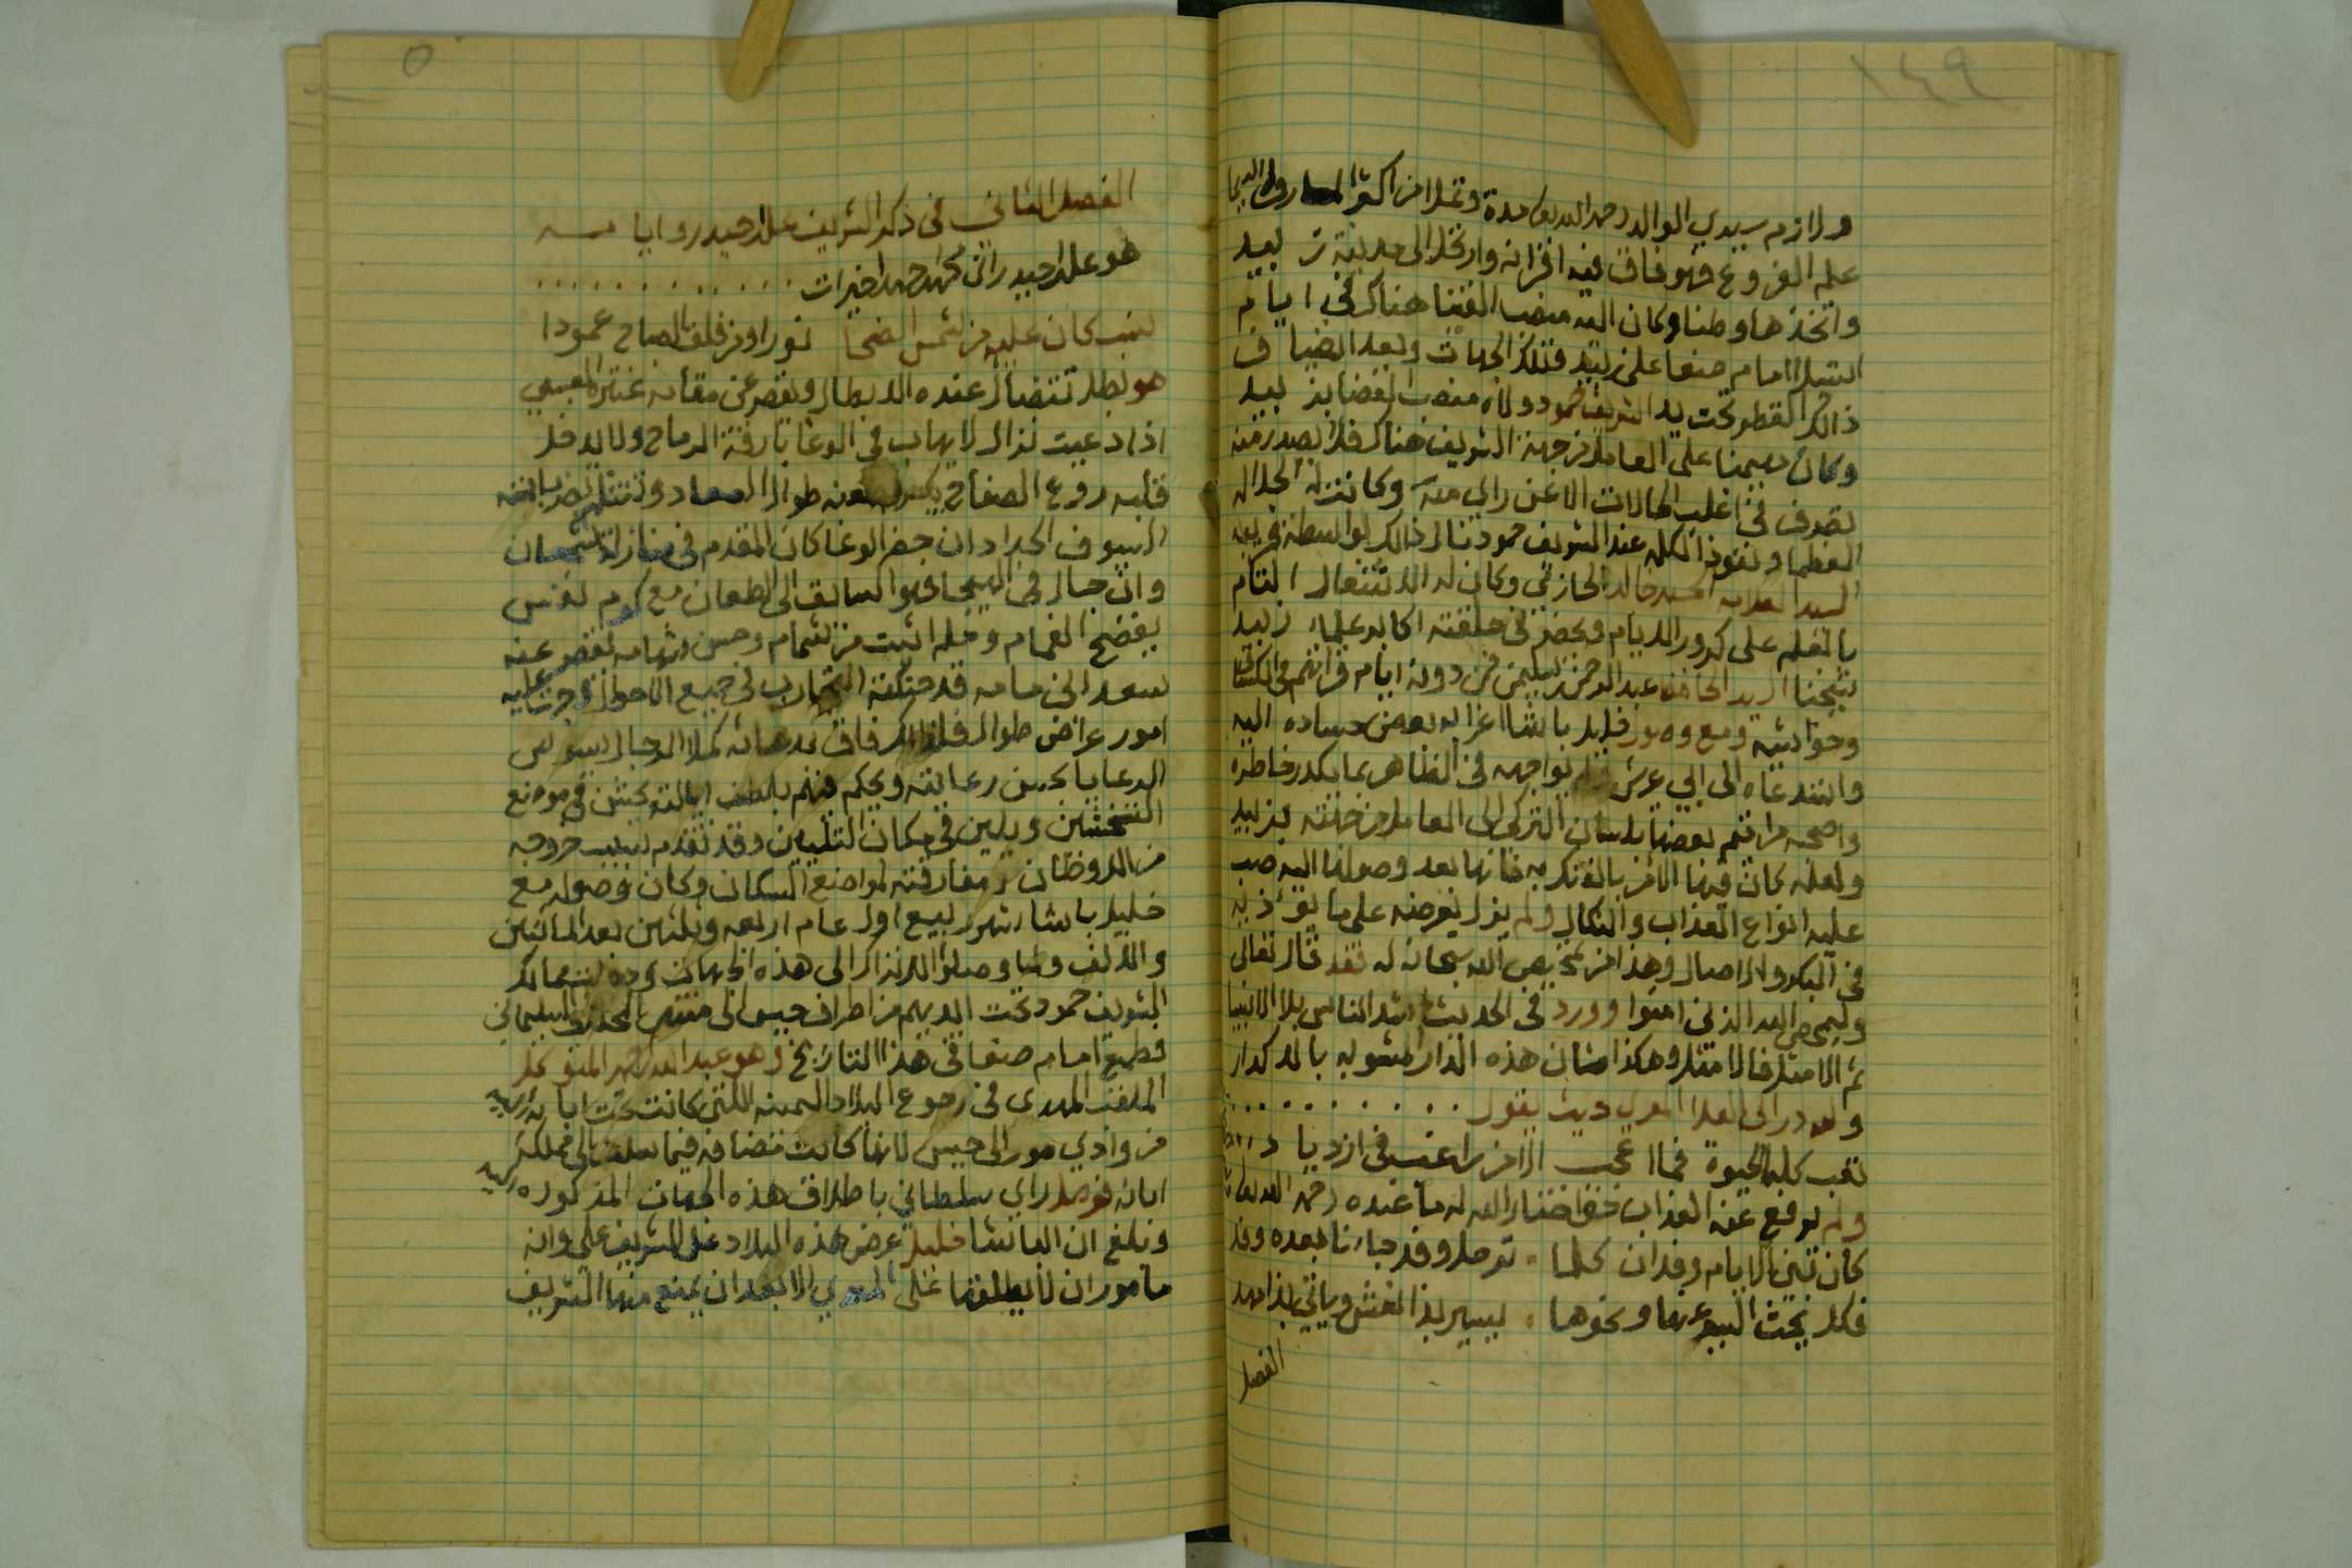 ١٤٩
ولازم سيدي الوالد رحمه الله مدة وتملا من اكثر المعارف لا سيما
علم الفروع فهو فاق فيه اقرانه وارتحل الى مدينة زبيد
واتخذها وطنا وكان اليه منصب الفتيا هناك في ايام
استيلا امام صنعا على زبيد وتلك الجهات وبعد انضياف
ذالك القطر تحت يد الشريف حمود ولاه منصب القضا بزبيد
وكان مهيمنا على العامل من جهة الشريف هناك فلا يصدر منه
تصرف في اغلب الحالات الا عن راي منه وكانت له الجلاله
العظما ونفوذ الكلمه عند الشريف حمود نال ذالك بواسطة
السيد العلامه الحسن خالد الحازمي وكان له الاشتغال التام
بالعلم على كرور الايام وبحضر في حلقته اكابر علماء زبيد
شيخنا السيد الحافظ عبد الرحمن بن سليمن فمن دونه ايام قرائتهم في الكشاف
وحواشيه ومع وصول خليل باشا اغرا به بعض حساده اليه
واستدعاه الى ابي عريش فلم يواجهه في الظاهر بما يكدر خاطره
واصحبه مراقيم بعضها بلسان التركي الى العامل من جهته بزبيد
ولعله كان فيها الامر بالفتك به فانها بعد وصولها اليه صب
عليه انواع العذاب والنكال ولم يزل يعرضه على ما يؤذيه
في البكور والاصال وهذا من تمحيص الله سبحانه له فقد قال تعالى
وليمحص الله الذين امنوا وورد في الحديث اشد الناس بلا الانبيا
ثم الامثل فالامثل وهكذا شان هذه الدار مشوبه بالاكدار
ولله در ابي العلا المعري حيث يقول . . . . . . . . . .
تعب كلها الحيوة فما اعجب الا من راغب في ازديا د
ولم يرفع عنه العذاب حتى اختار الله له ما عنده رحمه الله تعالى
كان تبني الايام وفدان كلما . ترحل وفد جاءنا بعده وفد
فكل يحث السير عنها ونحوها . يسير بذا نعش وياتي بذا مهد
الفصل
٥
الفصل الثاني في ذكر الشريف علي بن حيدر وايامه
هو علي بن حيدر ابن محمد احمد خيرات . . . . . . . . . .
نسب كان عليه من شمس الضحا نورا ومن فلق الصباح عمودا
هو بطل تتضاأل عنده الابطال ويقصر عن مقامه عنتر العبسي
اذا دعيت نزال لا يهاب في الوغا بارقة الرماح ولا يدخل
قلبه روع الصفاح طوال الصعاد وتنثلم بضرباته
السيوف الحداد ان حضر الوغا كان المقدم في منازلة الشجعان
وان جال في الهيجا فهو السابق الى الطعان مع كرم نفس
يفضح الغمام وحلم اثبت من شمام وحسن شهامه تقصر عنه
سعد الى مامه قد حنكته التجارب في جميع الاحوال وجرت عليه
امور عراض طوال فلذالك فاق بدهائه كملا الرجال يسوس
الرعايا بحسن رعايته ويحكم فيهم بلطف ايالته يخشن في موضع
التخشين ويلين في مكان التليين وقد تقدم سبب خروجه
من الاوطان ومفارقته لمواضع السكان وكان وصوله مع
خليل باشا شهر ربيع اول عام اربعه وثلثين بعد المائتين
والالف ولما وصلوا الاتراك الى هذه الجهات ودخلت ممالك
الشريف حمود تحت ايديهم من اطراف حيس الى منتهى المخلاف السليماني
فطمع امام صنعا في هذا التاريخ وهو عبد الله احمد المتوكل
الملقب المهدي في رجوع البلاد اليمنيه اللتي كانت تحت يد ابائه
من وادي مور الى حيس لانها كانت مضافه فيما سلف الى مملكة
ابائه فوصل راي سلطاني باطلاق هذه الجهات المذكوره اليه
وبلغ ان الباشا خليل عرض هذه البلاد على الشريف علي وانه
مامور ان لا يطلقها على المهدي الا بعد ان يمتنع منها الشريف